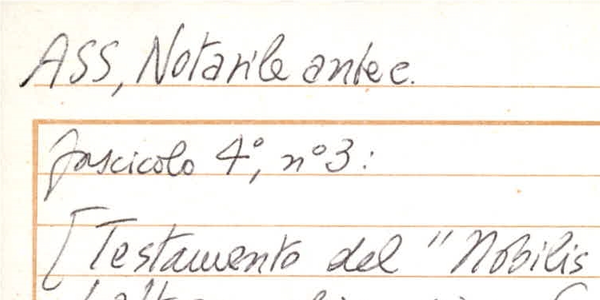 ASS, Notarile antec.
fascicolo 4°, n°3:
[Testamento del "Nobilis